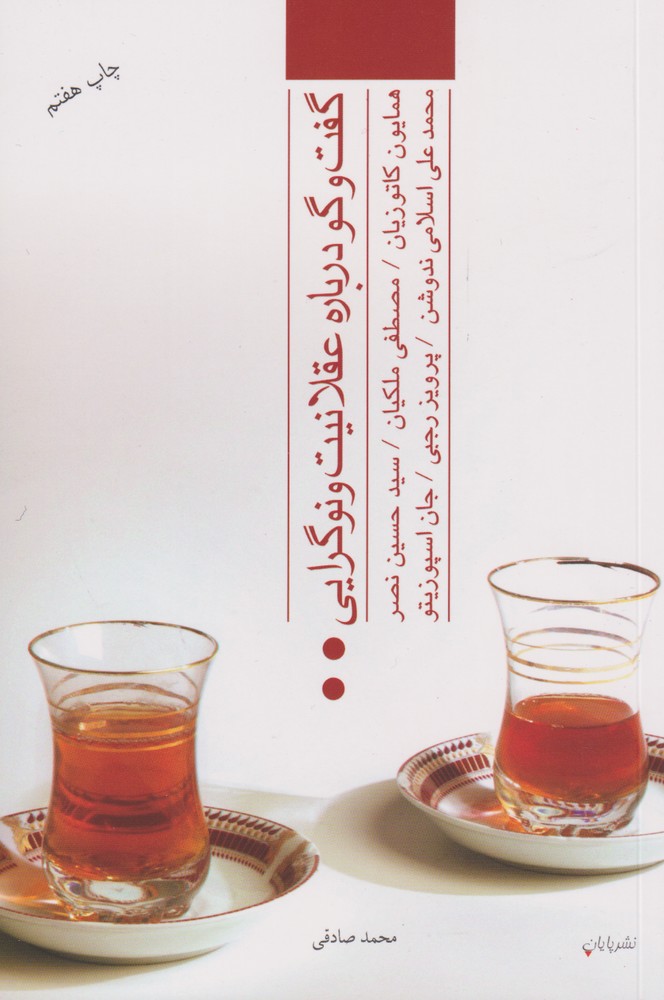 چاپ هفتم
گفت و گو درباره عقلانیت و نوگرایی
همایون کاتوزیان / مصطفی ملکیان / سید حسین نصر
محمد علی اسلامی ندوشن / پرویز رجبی / جان اسپوزیتو
محمد صادقی
نشر پایان